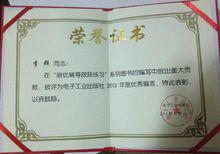 荣誉证书
同志：
在“培优辅导跟踪练习”系列图书的编写中做出重大贡
献，被评为电子工业出版社 2013 年度优秀编者，特此表彰，
以资鼓励。